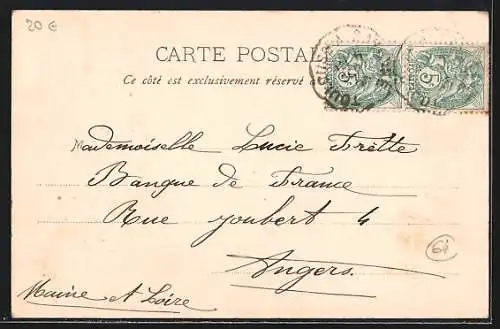 20 €
CARTE POSTAL
Ce côté est exclusivement réservé à
5 5
Mademoiselle Lucie Frètte
Banque de France
Rue Joubert 4
Angers.
Maine et Loire
61